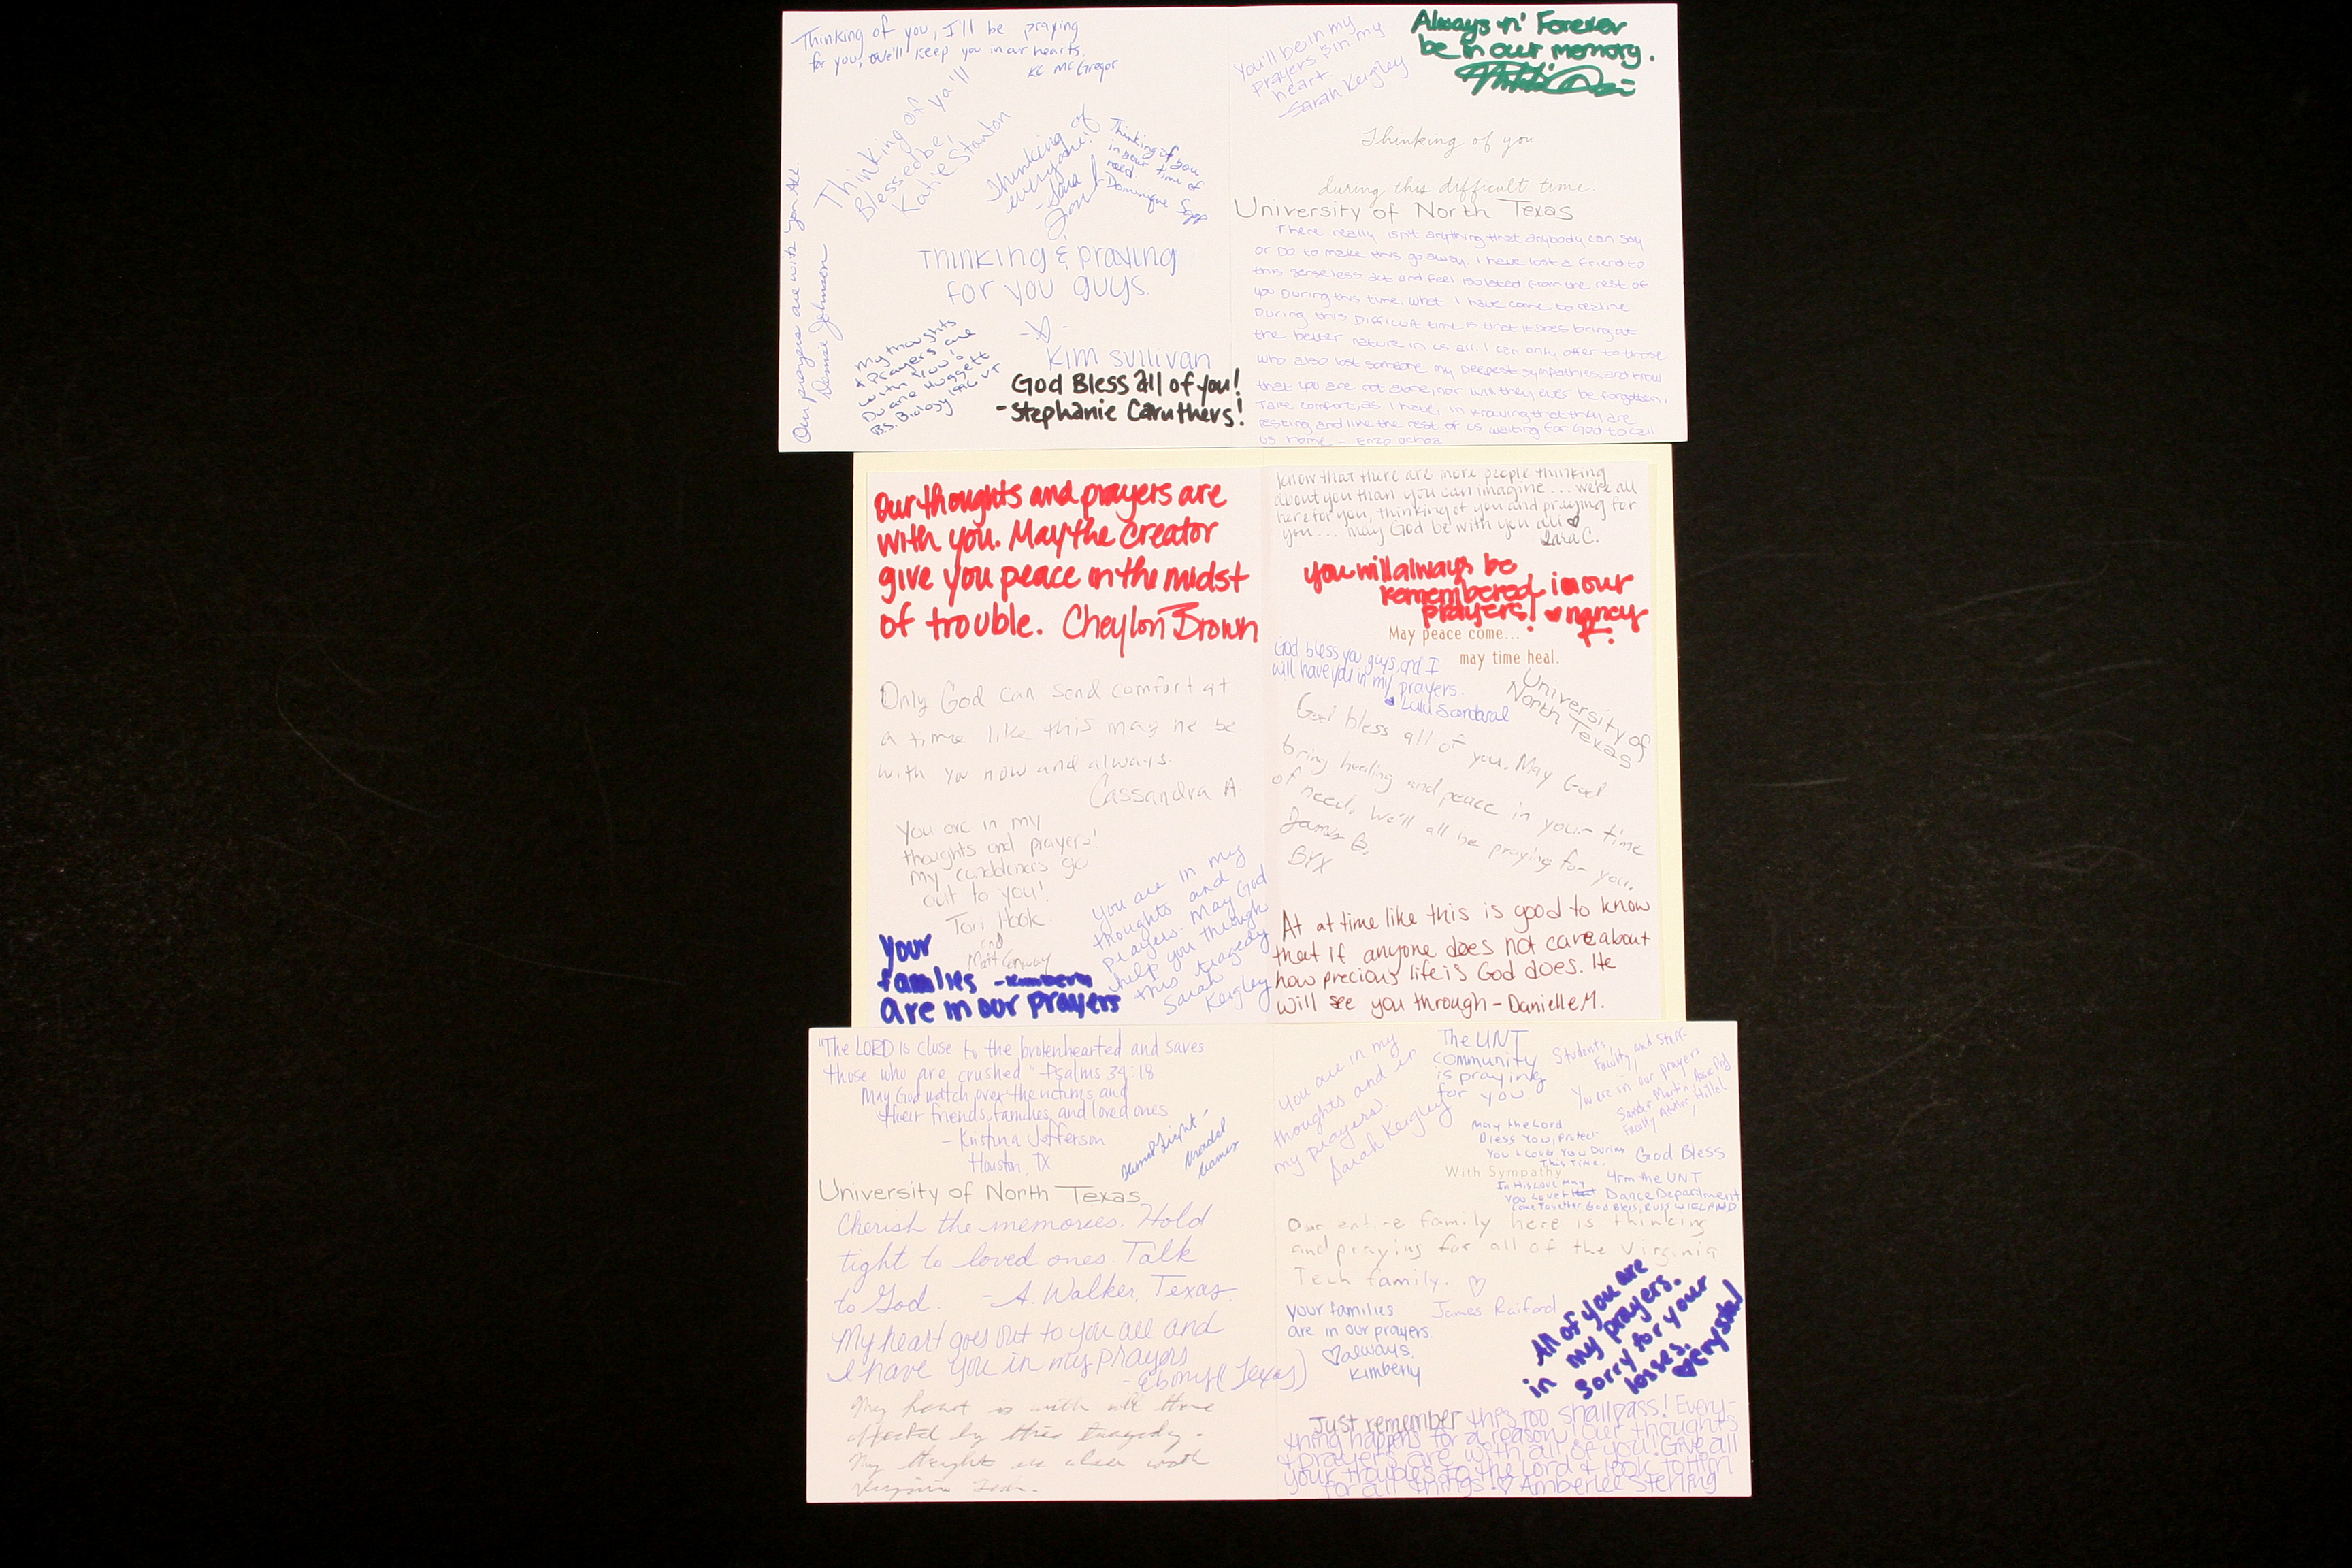 Thinking of you, I'll be praying
for you, & we'll keep you in our hearts.
KC McGregor
Thinking of ya'll
Blessed be,
Katie Stanton
Thinking of
everyone!
-Sara
Thinking of you
in your time of
need.
-Dominique Sapp
Our prayers are with you All.
Johnson
THINKING & PRAYING
FOR YOU GUYS.
KIM SULLIVAN
My thoughts
+ prayers are
with you!
Duane Huggett
B.S. Biology 1996 VT
God Bless all of you!
-Stephanie Caruthers!
You'll be in my
prayers & in my
heart.
-Sarah Keigley
Always n' Forever
be in our memory.
Thinking of you
during this difficult time.
University of North Texas
There really isn't anything that anybody can say
or do to make this go away. I have lost a friend to
this senseless act and feel isolated from the rest of
you during this time. What I have come to realize
During this difficult time is that it does bring out
the better nature in us all. I can only offer to those
who also lost someone my deepest sympathies, and know
that you are not alone, nor will they ever be forgotten.
Take comfort, as I have, in knowing that they are
resting and like the rest of us waiting for God to call
us home - Enzo Ochoa
Our thoughts and prayers are
with you. May the Creator
give you peace in the midst
of trouble. Cheylon Brown
Only God can send comfort at
a time like this may he be
with you now and always.
Cassandra A
You are in my
thoughts and prayers!
my condolences go
out to you!
Tori Hook
and
Matt Conway
Your
families -Kimberly
are in our prayers
You are in my
thoughts and
prayers. May God
help you through
this tragedy
Sarah
Keigley
Know that there are more people thinking
about you than you can imagine... we're all
here for you, thinking of you and praying for
you... may God be with you all ♥
Lara C.
you will always be
remembered in our
prayers! ♥ nancy
F.
May peace come...
may time heal.
God bless you guys, and I
will have you in my prayers.
Lulu Sandoval
University of
North Texas
God bless all of you. May God
bring healing and peace in your time
of need. We'll all be praying for you.
James G.
BYX
At at time like this is good to know
that if anyone does not care about
how precious life is God does. He
will see you through - Danielle M.
"The LORD is close to the brokenhearted and saves
those who are crushed" - Psalms 34:18
May God watch over the victims and
their friends, families, and loved ones
- Kristina Jefferson
Houston, TX
University of North Texas
Cherish the memories. Hold
tight to loved ones. Talk
to God. - A. Walker, Texas.
My heart goes out to you all and
I have you in my prayers
- Ebony (Texas)
My heart is with all those
affected by this tragedy.
My thoughts are also with
Virginia Tech.
You are in my
thoughts and in
my prayers.
Sarah Keigley
The UNT
community
is praying
for you.
Students, Faculty, and Staff-
Y'were in our prayers
Martin, Assoc Prof
Faculty Advisor, Hillel
May the Lord
Bless You, Protect
You & Cover You During
This Time.
In His Love May
You
Come Together God Bless, RUSS WIELAND
God Bless
Frm the UNT
Dance Department
With Sympathy
Our entire family here is thinking
and praying for all of the Virginia
Tech family. ♡
James Raiford
Your families
are in our prayers.
♡ always,
Kimberly
All of you are
in my prayers.
Sorry for your
losses.
♥ Crystal
Just remember this too shall pass! Every-
thing happens for a reason! Our thoughts
& prayers are with all of you! Give all
your troubles to the Lord & look to Him
for all things! ♡ Amberlee Sterling